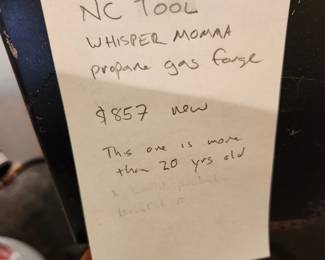 NC TOOL
WHISPER MOMMA
propane gas forge
$857 new
This one is more
than 20 yrs old